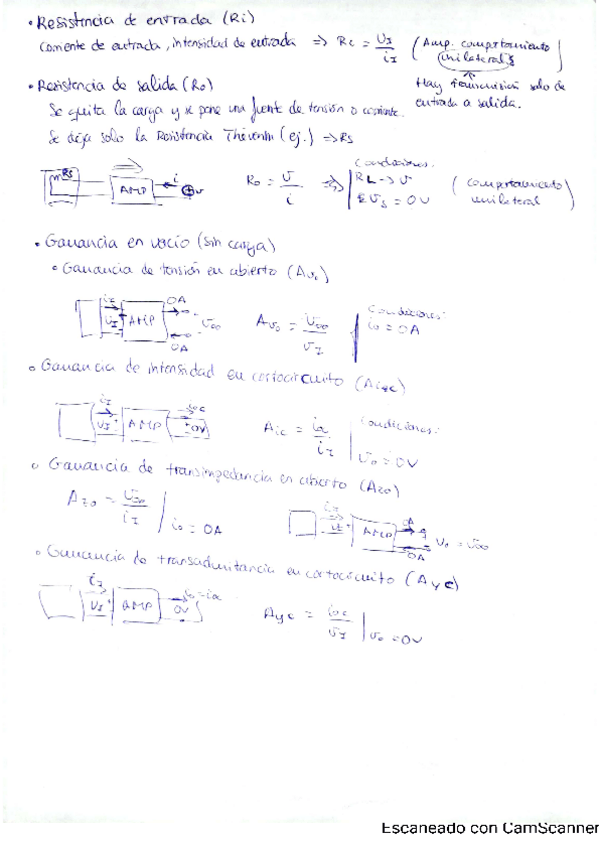 • Resistencia de entrada (Ri)
Corriente de entrada, intensidad de entrada => Ri = UI / iI (Amp. comportamiento unilateral)
Hay transmisión solo de entrada a salida.
• Resistencia de salida (Ro)
Se quita la carga y se pone una fuente de tensión o corriente.
Se deja solo la Resistencia Thévenin (ej.) => Rs
Rs AMP i v
Ro = v / i =>
Condiciones:
RL -> v
vs = 0V
(comportamiento unilateral)
• Ganancia en vacío (sin carga)
• Ganancia de tensión en abierto (Avo)
iI vI AMP 0A 0A voo
Avo = voo / vI
Condiciones:
io = 0A
o Ganancia de intensidad en cortocircuito (Aic)
iI vI AMP ioc 0V
Aic = / iI
Condiciones:
vo = 0V
o Ganancia de transimpedancia en abierto (Azo)
Azo = voo / iI | io = 0A
iI AMP 0A 0A vo = voo
o Ganancia de transadmitancia en cortocircuito (Ayc)
iI vI AMP 0V
Ayc = ioc / vI | vo = 0V
Escaneado con CamScanner